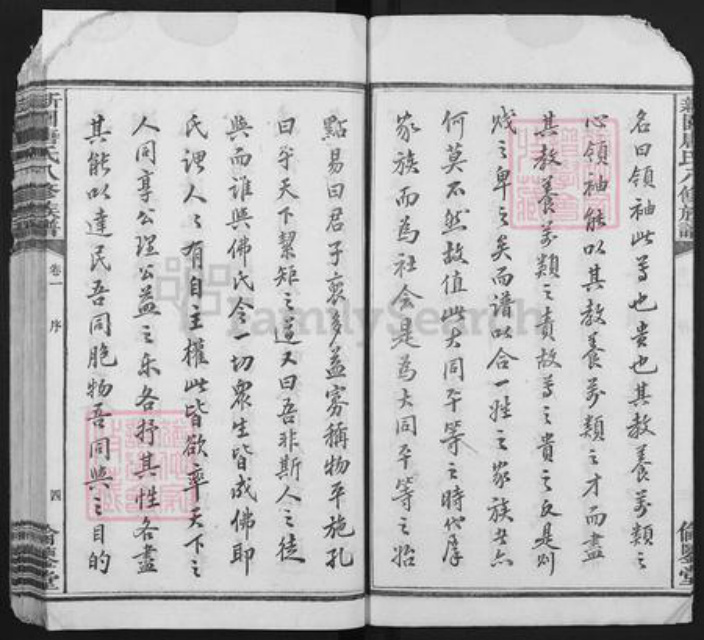 名曰領袖此尊也貴也其教養萬類之
心領袖能以其教養萬類之才而盡
其教養萬類之責故尊之貴之反是則
賤之卑之矣而譜以合一姓之家族者亦
何莫不然故值此大同平等之時代序
家族而為社会是為大同平等之始
點易曰君子裒多益寡稱物平施孔
曰平天下絜矩之道又曰吾非斯人之徒
與而誰與佛氏令一切眾生皆成佛耶
氏謂人人有自主權此皆欲率天下之
人同享公理公益之乐各抒其性各盡
其能以達民吾同胞物吾同與之目的
卷一 序
四
FamilySearch